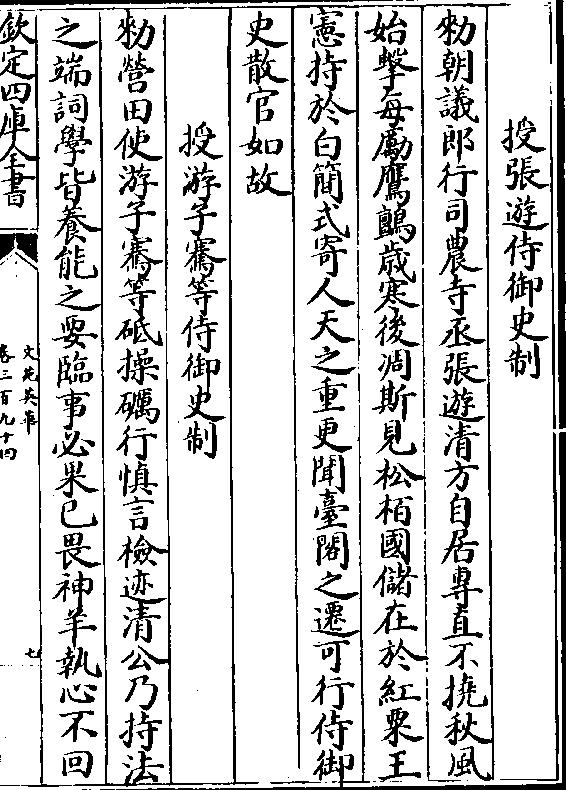 授張遊侍御史制
勑朝議郎行司農寺丞張遊清方自居專直不撓秋風
始擊每勵鷹鸇歲寒後凋斯見松栢國儲在於紅粟王
憲持於白簡式寄人天之重更聞臺閣之遷可行侍御
史散官如故
授游子騫等侍御史制
勑營田使游子騫等砥操礪行慎言檢迹清公乃持法
之端詞學皆養能之要臨事必果已畏神羊執心不回
欽定四庫全書
文苑英華
卷三百九十四
七